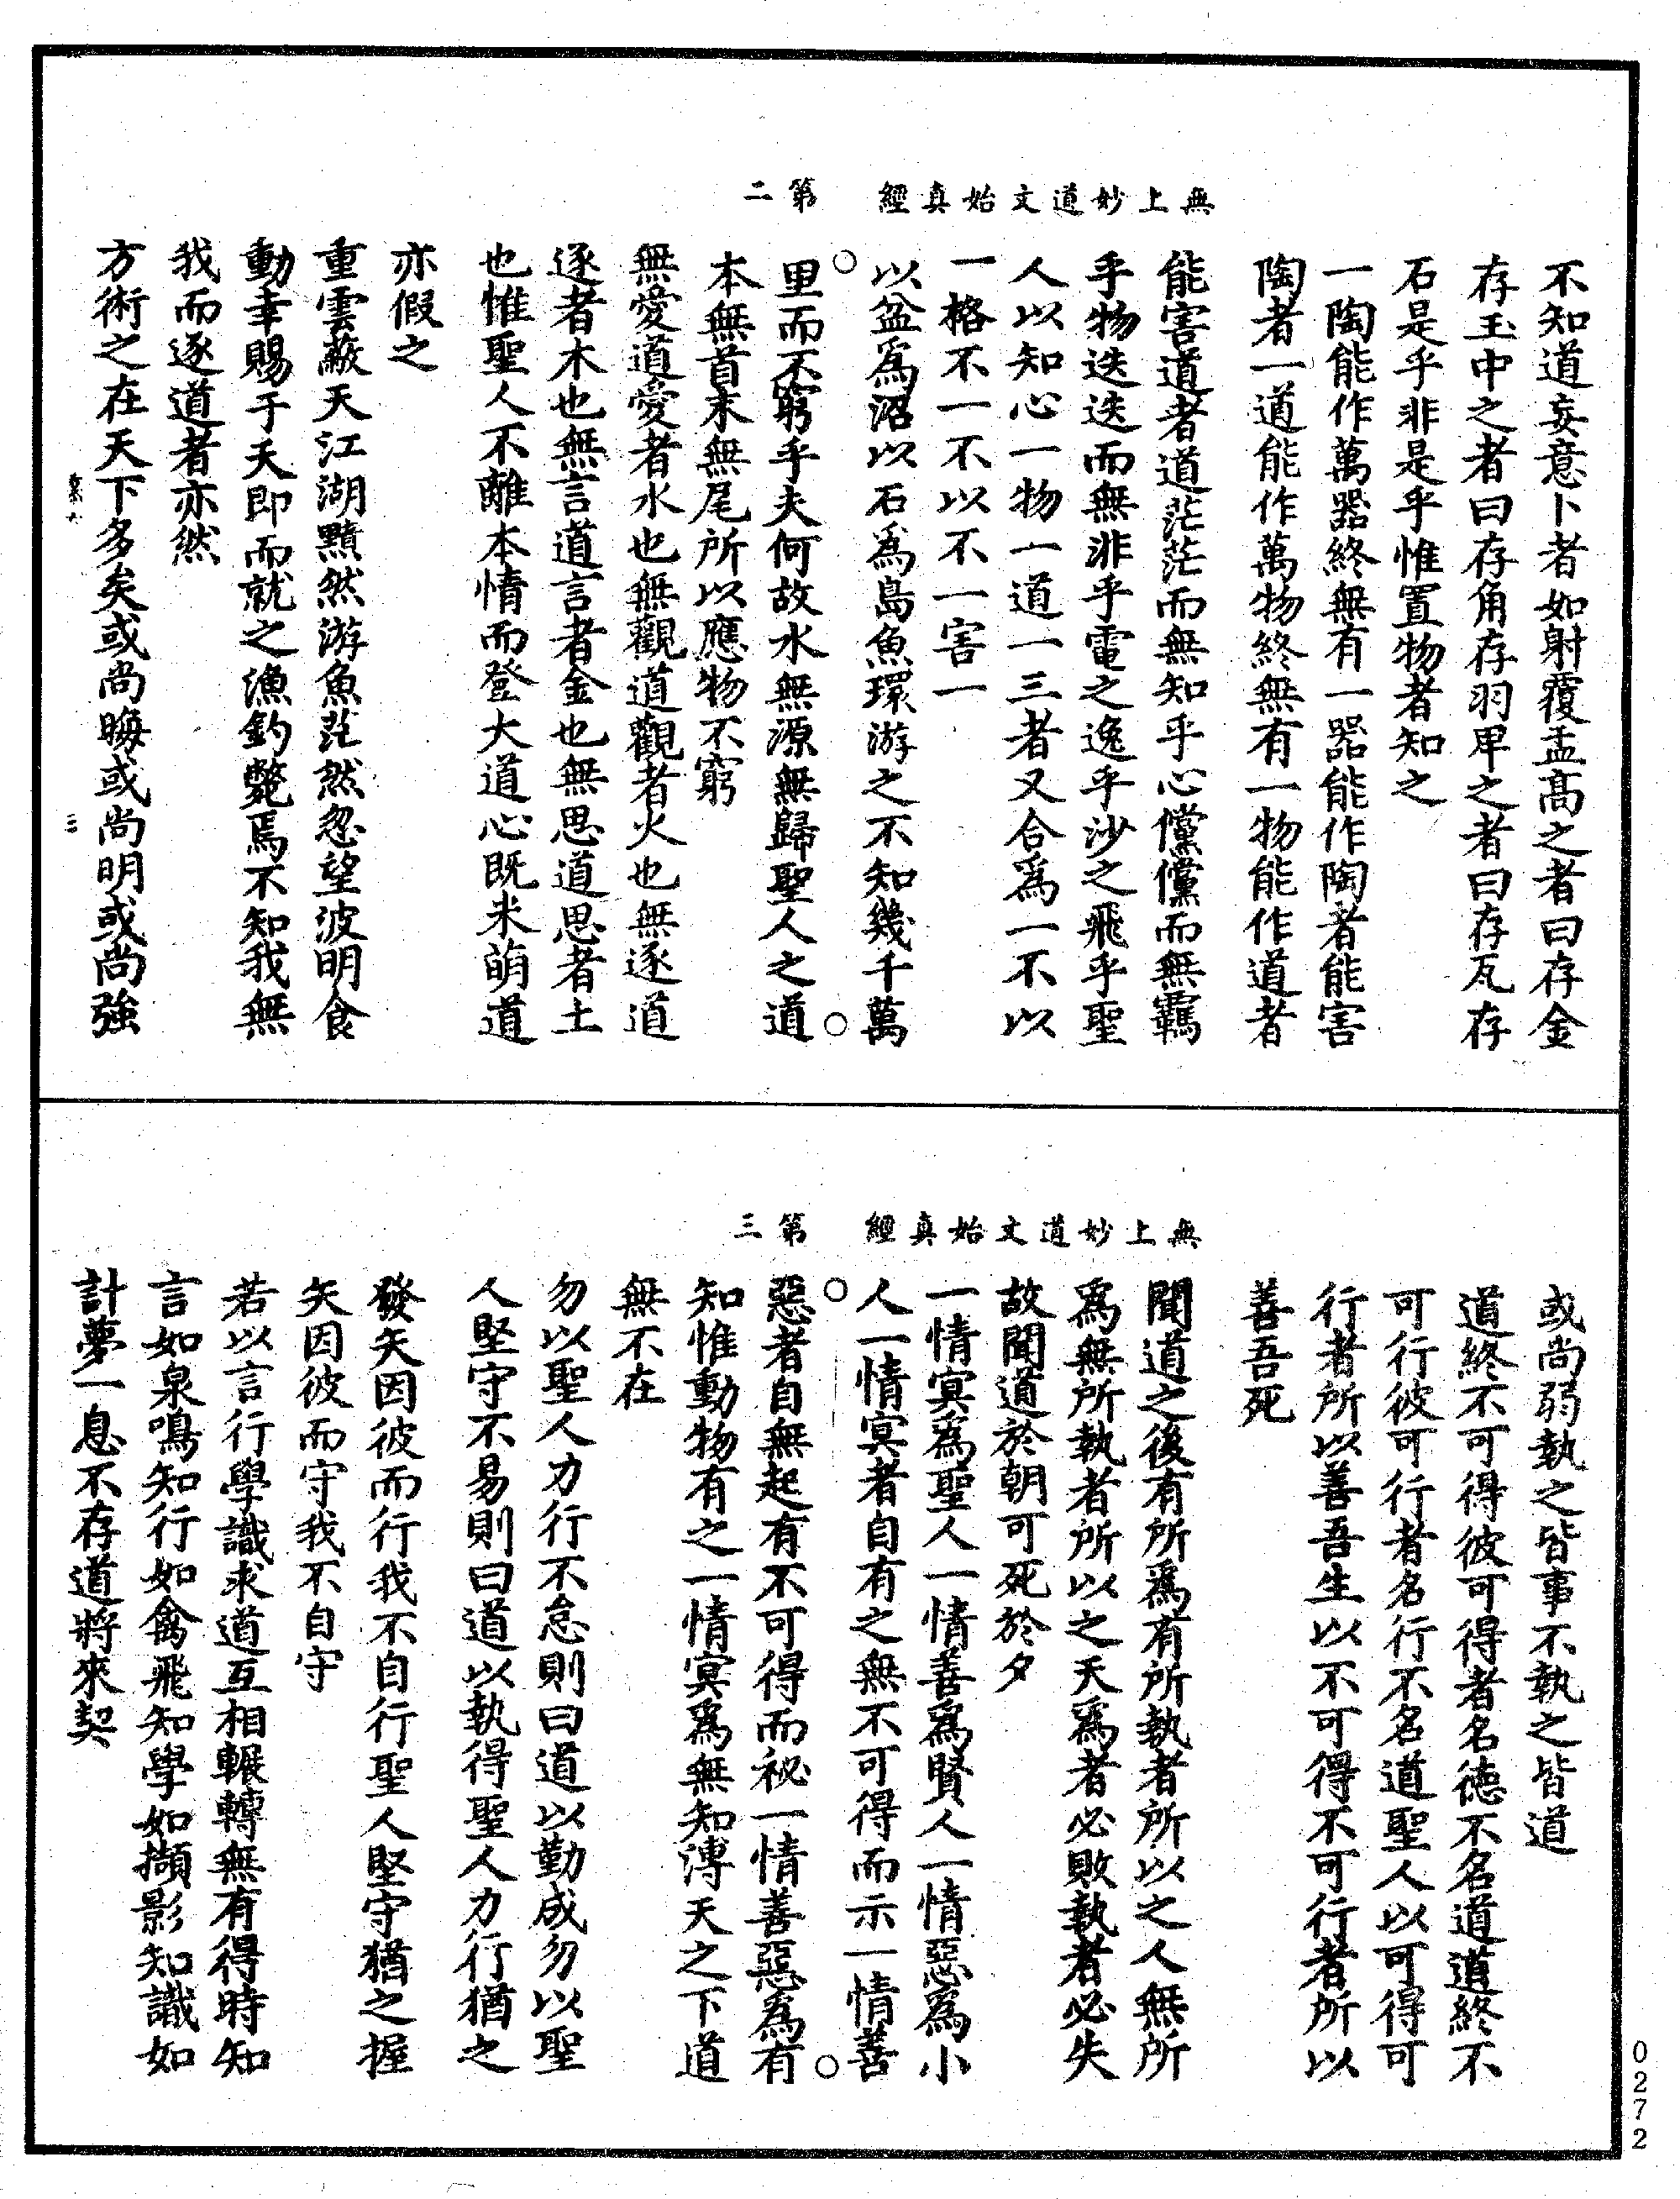 無上妙道文始真經　第二
不知道妄意卜者如射覆盂高之者曰存金
存玉中之者曰存角存羽卑之者曰存瓦存
石是乎非是乎惟置物者知之
一陶能作萬器終無有一器能作陶者能害
陶者一道能作萬物終無有一物能作道者
能害道者道茫茫而無知乎心儻儻而無羈
乎物迭迭而無非乎電之逸乎沙之飛乎聖
人以知心一物一道一三者又合爲一不以
一格不一不以不一害一
以盆爲沼以石爲島魚環游之不知幾千萬
里而不窮乎夫何故水無源無歸聖人之道
本無首末無尾所以應物不窮
無愛道愛者水也無觀道觀者火也無逐道
逐者木也無言道言者金也無思道思者土
也惟聖人不離本情而登大道心既未萌道
亦假之
重雲蔽天江湖黯然游魚茫然忽望波明食
動幸賜于天即而就之漁釣斃焉不知我無
我而逐道者亦然
三
方術之在天下多矣或尚晦或尚明或尚強
無上妙道文始真經　第三
或尚弱執之皆事不執之皆道
道終不可得彼可得者名德不名道道終不
可行彼可行者名行不名道聖人以可得可
行者所以善吾生以不可得不可行者所以
善吾死
聞道之後有所爲有所執者所以之人無所
爲無所執者所以之天爲者必敗執者必失
故聞道於朝可死於夕
一情冥爲聖人一情善爲賢人一情惡爲小
人一情冥者自有之無不可得而示一情善
惡者自無起有不可得而祕一情善惡爲有
知惟動物有之一情冥爲無知溥天之下道
無不在
勿以聖人力行不怠則曰道以勤成勿以聖
人堅守不易則曰道以執得聖人力行猶之
發矢因彼而行我不自行聖人堅守猶之握
矢因彼而守我不自守
若以言行學識求道互相輾轉無有得時知
言如泉鳴知行如禽飛知學如擷影知識如
計夢一息不存道將來契
0272